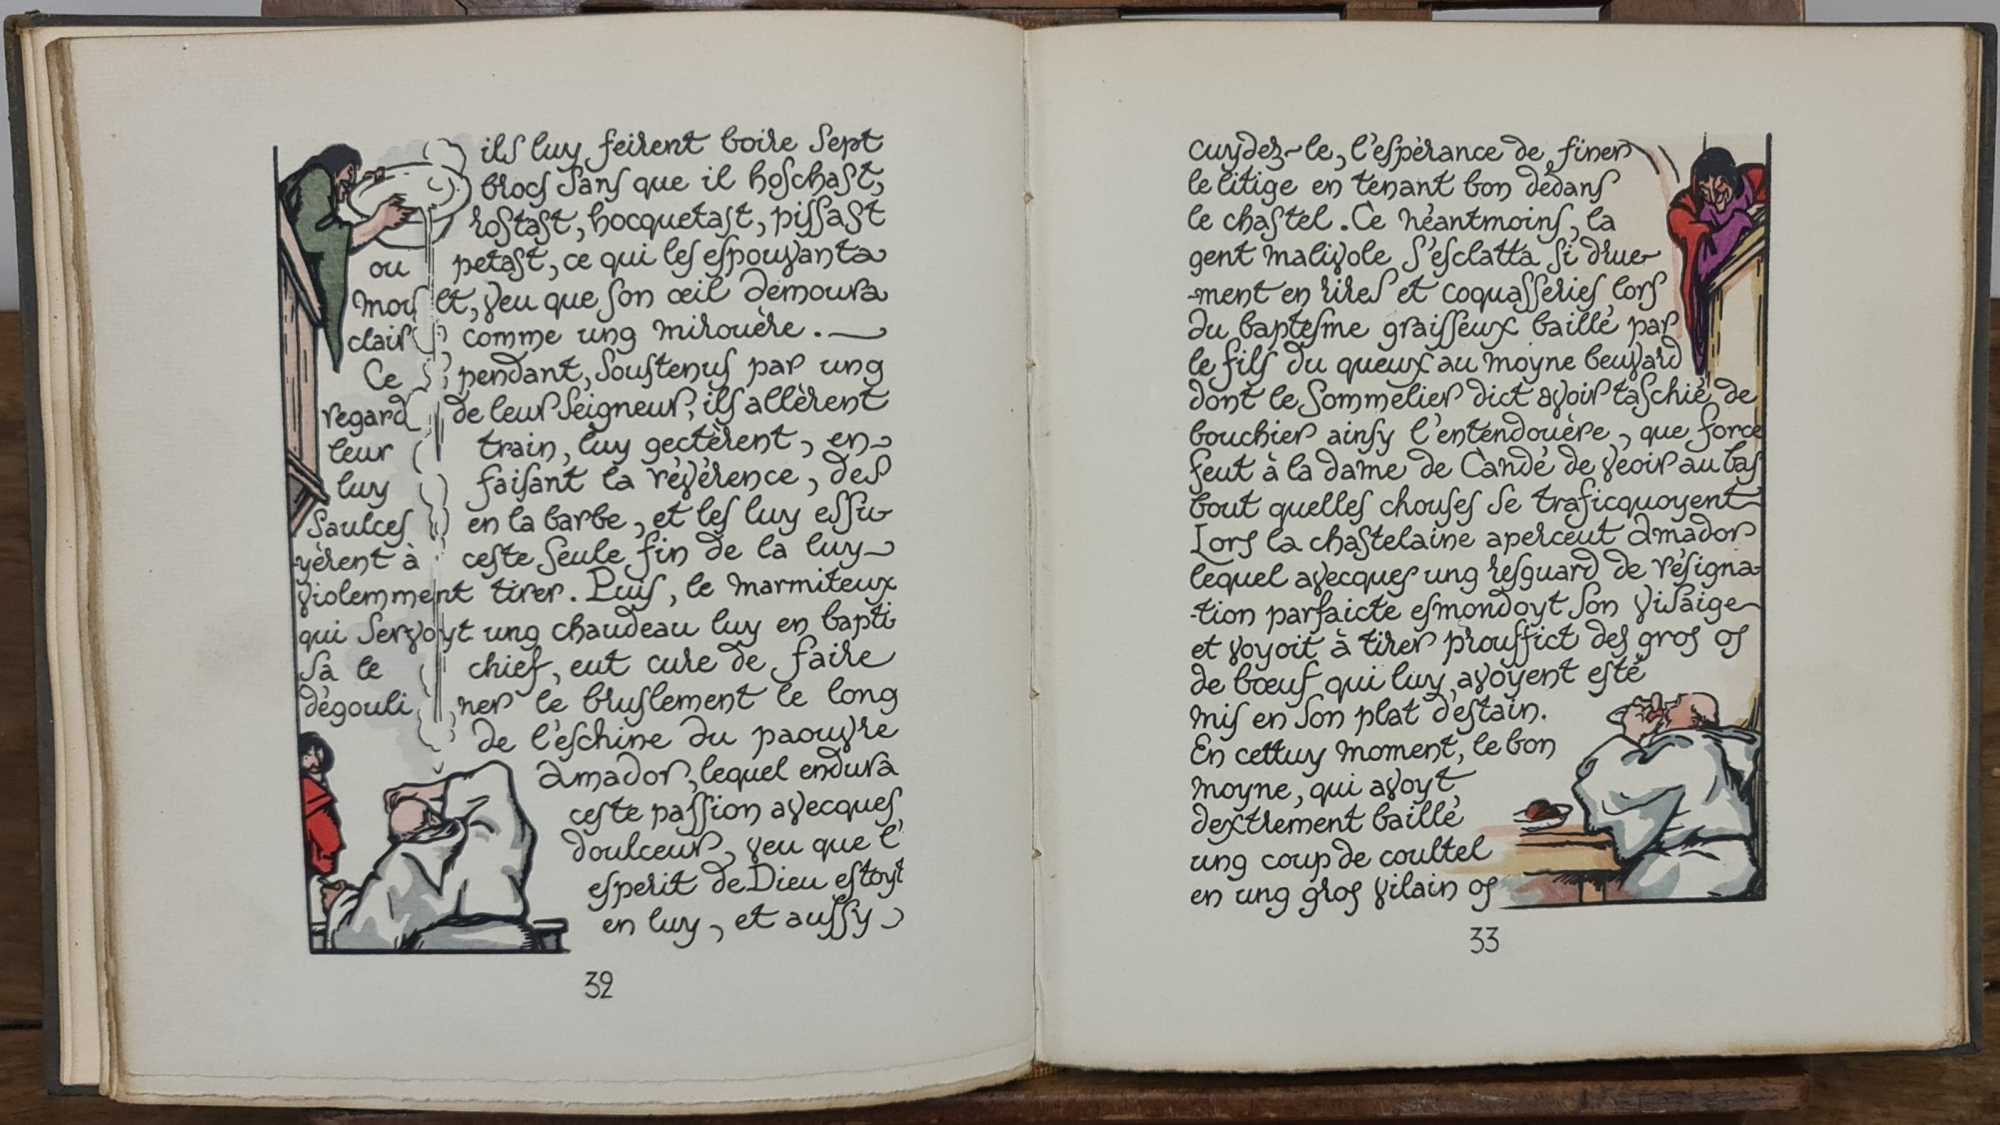 ils luy feirent boire sept
brocs sans que il hoschast,
rostast, hocquetast, pissast
ou petast, ce qui les espouvanta
moult, veu que son œil demoura
clair comme ung mirouère.
Ce pendant, soustenus par ung
regard de leur seigneur, ils allèrent
leur train, luy gectèrent, en
luy faisant la révérence, des
saulces en la barbe, et les luy essu
yèrent à ceste seule fin de la luy
violemment tirer. Puis, le marmiteux
qui servoyt ung chaudeau luy en bapti
sa le chief, eut cure de faire
dégouliner le bruslement le long
de l'eschine du paouvre
Amador, lequel endura
ceste passion avecques
doulceur, veu que l'
esperit de Dieu estoyt
en luy, et aussy
32
cuydez-le, l'espérance de finer
le litige en tenant bon dedans
le chastel. Ce néantmoins, la
gent malivole s'esclatta si drue-
-ment en rires et coquasseries, lors
du baptesme graisseux baillé par
le fils du queux au moyne beuvard
dont le sommelier dict avoir taschié de
bouchier ainsy l'entendouère, que force
feut à la dame de Candé de veoir au bas
bout quelles chouses se traficquoyent
Lors la chastelaine aperceut Amador
lequel avecques ung resguard de résigna-
-tion parfaicte esmondoyt son visaige
et voyoit à tirer prouffict des gros os
de bœuf qui luy avoyent esté
mis en son plat d'estain.
En cettuy moment, le bon
moyne, qui avoyt
dextrement baillé
ung coup de coultel
en ung gros vilain os
33